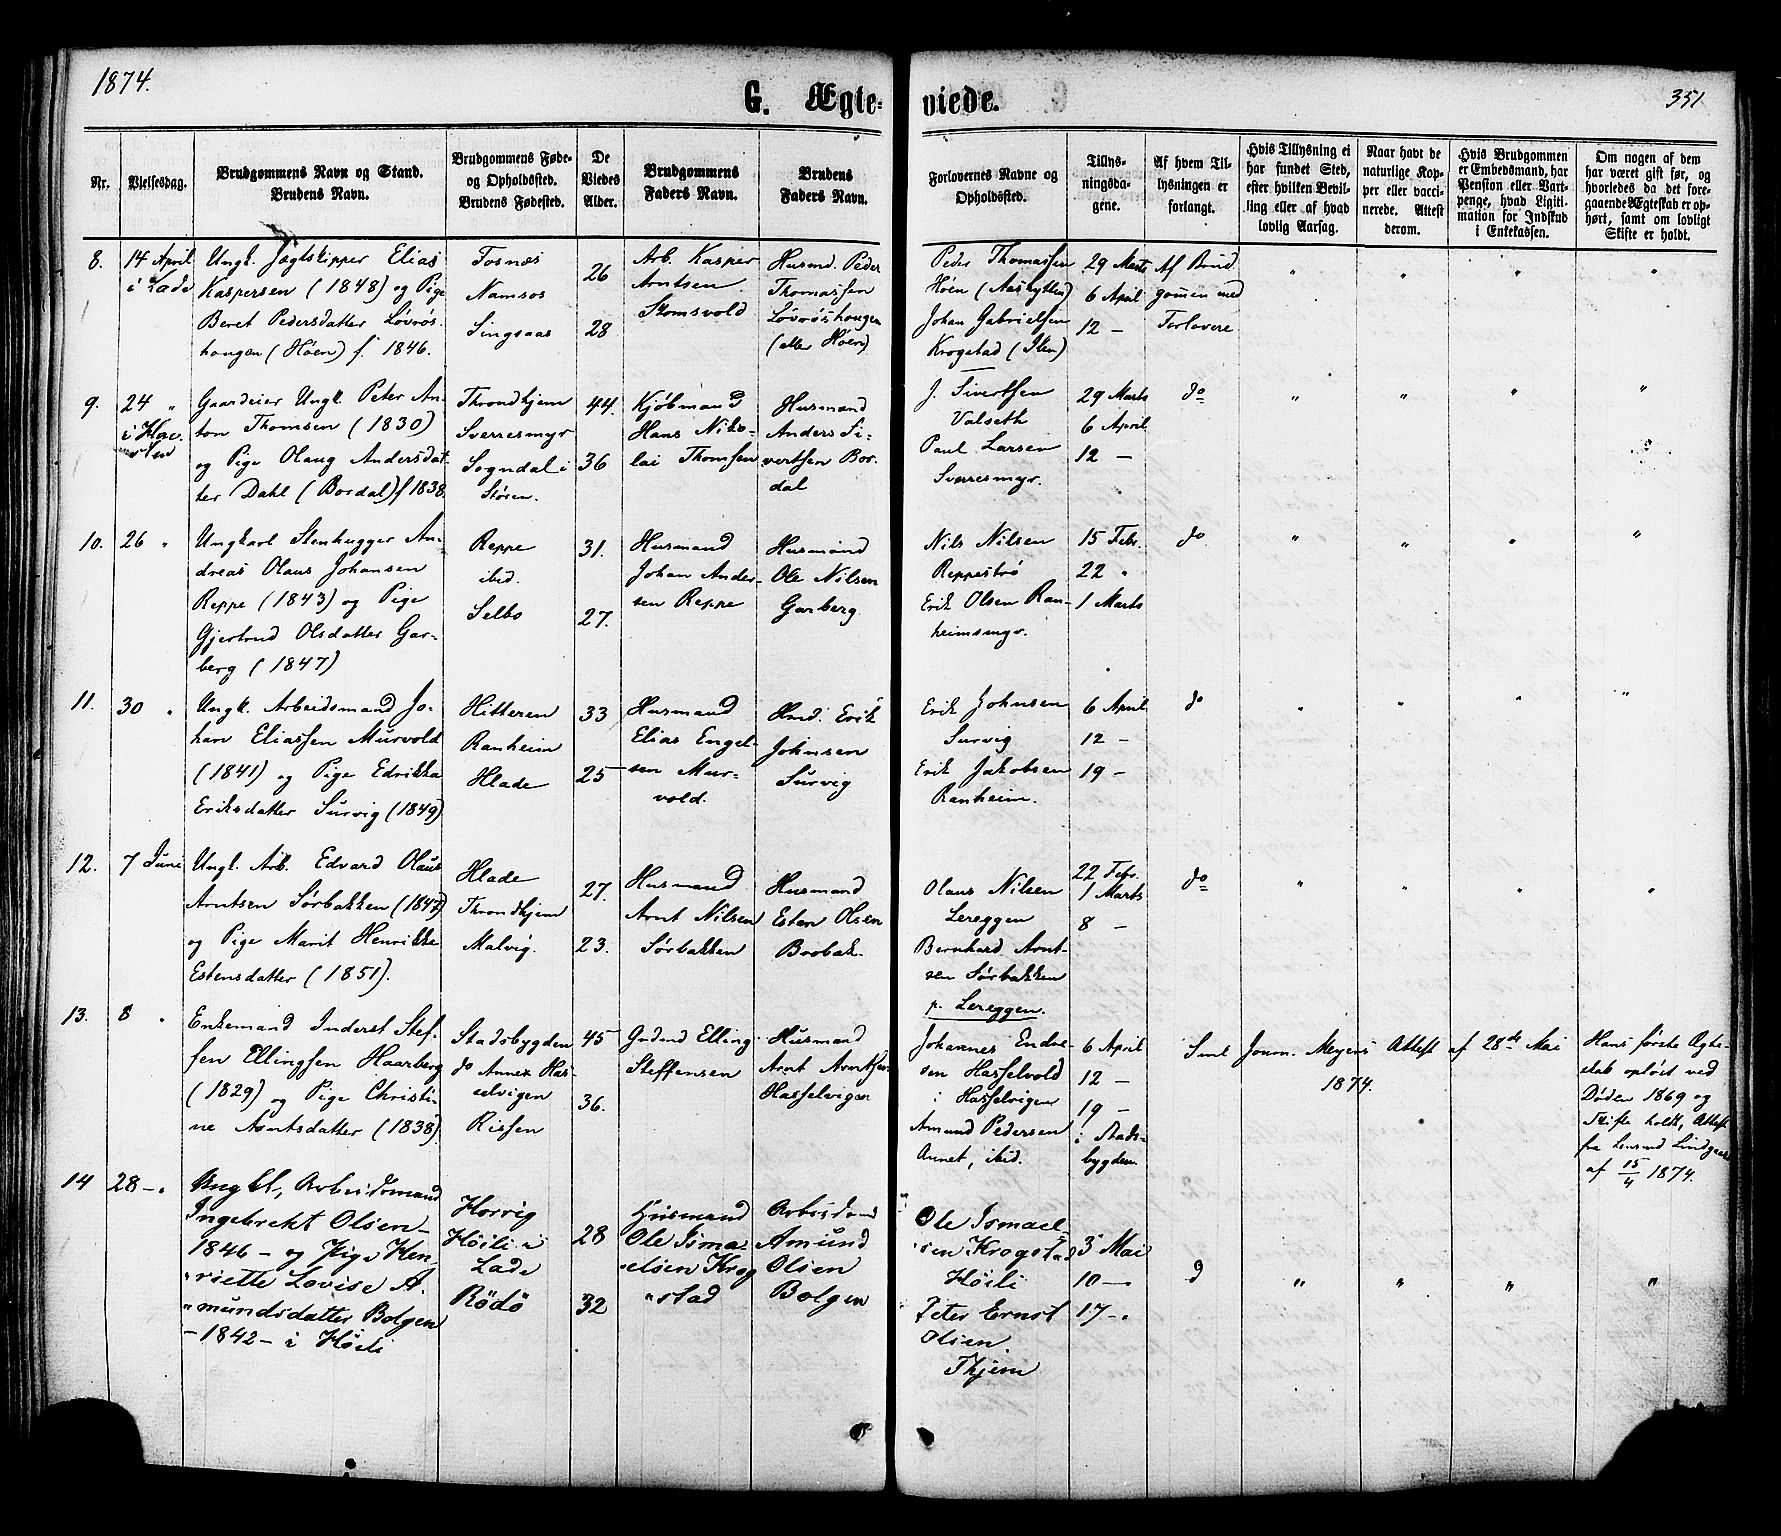 1874.
G. Ægteviede.
351
Nr.
Vielsesdag.
Brudgommens Navn og Stand.
Brudens Navn.
Brudgommens Føde-
og Opholdssted.
Brudens Fødested.
De
Viedes
Alder.
Brudgommens
Faders Navn.
Brudens
Faders Navn.
Forlovernes Navne og
Opholdssted.
Tillys-
ningsda-
gene.
Af hvem Til-
lysningen er
forlangt.
Hvis Tillysning ei
har fundet Sted,
efter hvilken Bevil-
ling eller af hvad
lovlig Aarsag.
Naar havt de
naturlige Kop-
per eller vacci-
nerede. Attest
derom.
Hvis Brudgommen
er Embedsmand, har
Pension eller Vart-
penge, hvad Ligiti-
mation for Indskud
i Enkekassen.
Om nogen af dem
har været gift før, og
hvorledes da det fore-
gaaende Ægteskab er op-
hørt, samt om lovligt
Skifte er holdt.
8.
14 April
i Lade
Ungk. Jægtskipper Elias
Kaspersen (1848) og Pige
Beret Pedersdatter Løvrøs-
hougen (Høen) f. 1846.
Fosnæs
Namsos
Singsaas
26
28
Arb. Kasper
Arntsen
Husmd. Peder
Thomassen
Løvrøshougen
(eller Høen)
Peder Thomassen
Høen (Aashytten)
Johan Gabrielsen
Krogstad (Ilen)
29 Marts
6 April
12 —
Af Brud-
gomen med
Forlovere
" " " "
9.
24 "
Gaardeier Ungk. Peter An-
ton Thomsen (1830)
og Pige Olaug Andersdat-
ter Dahl (Bordal) f 1838.
Throndhjem
Sverresmyr
Sogndal i
Støren.
44.
36
Kjøbmand
Hans Niko-
lai Thomsen
Husmand
Anders Si-
vertsen Bor-
dal
J. Sivertsen
Valseth
Paul Larsen
Sverresmyr.
29 Marts
6 April
12 —
do
" " " "
10.
26 "
Ungkarl Stenhugger An-
dreas Olaus Johansen
Reppe (1843) og Pige
Gjertrud Olsdatter Gar-
berg (1847)
Reppe
ibid.
Selbo
31.
27.
Husmand
Johan Ander-
sen Reppe
Husmand
Ole Nilsen
Garberg
Nils Nilsen
Reppestrø
Erik Olsen Ran-
heimsmyr.
15 Febr.
22 "
1 Marts
do
" " " "
11.
30 "
Ungk. Arbeidsmand Jo-
han Eliassen Murvold
(1841) og Pige Edrikka
Eriksdatter Survig (1849)
Hitteren
Ranheim
Hlade
33
25
Husmand
Elias Engel-
sen Mur-
vold.
Hmd. Erik
Johnsen
Survig
Erik Johnsen
Survig
Erik Jakobsen
Ranheim.
6 April
12 —
19 —
do
" " " "
12.
7 Juni
Ungk. Arb. Edvard Olaus
Arntsen Sørbakken (1847)
og Pige Marit Henrikke
Estensdatter (1851).
Hlade
Throndhjem
Malvig.
27.
23.
Husmand
Arnt Nilsen
Sørbakken
Husmand
Esten Olsen
Brobak.
Olaus Nilsen
Lereggen
Bernhard Arnt-
sen Sørbakken
p. Lereggen.
22 Febr.
1 Marts
8 —
do
" " " "
13.
8 "
Enkemand Inderst Stef-
fen Ellingsen Haarberg
(1829) og Pige Christi-
ne Arntsdatter (1838).
Stadsbygden
do Annex Has-
selvigen
Rissen
45
36.
Gudmd Elling
Steffensen
Husmand
Arnt Arntsen
Hasselvigen
Johannes Endre-
sen Hasselvold
i Hasselvigen
Amund Pedersen
Aunet, ibid.
6 April
12 —
19 —
i Stads-
bygden
Smt Journ. Meyers Attest af 28de Mai
1874.
Hans første Ægte-
skab opløst ved
Døden 1869 og
Skifte holdt, Attest
fra Lensmd Lindgaard
af 15/4 1874.
14
28 — "
Ungkl, Arbeidsmand
Ingebrekt Olsen —
1846 — og Pige Hen-
riette Lovise A-
mundsdatter Bolgen
— 1842 — i Høili
Horvig
Høili i
Lade
Rödö
28
32
Husmand
Ole Isma-
elsen Krog
stad
Arbeidsmd
Amund
Olsen
Bolgen
Ole Ismael-
sen Krogstad
Höili
Peter Ernst
Olsen.
Thjem
3 Mai
10 —
17 —
" " " "